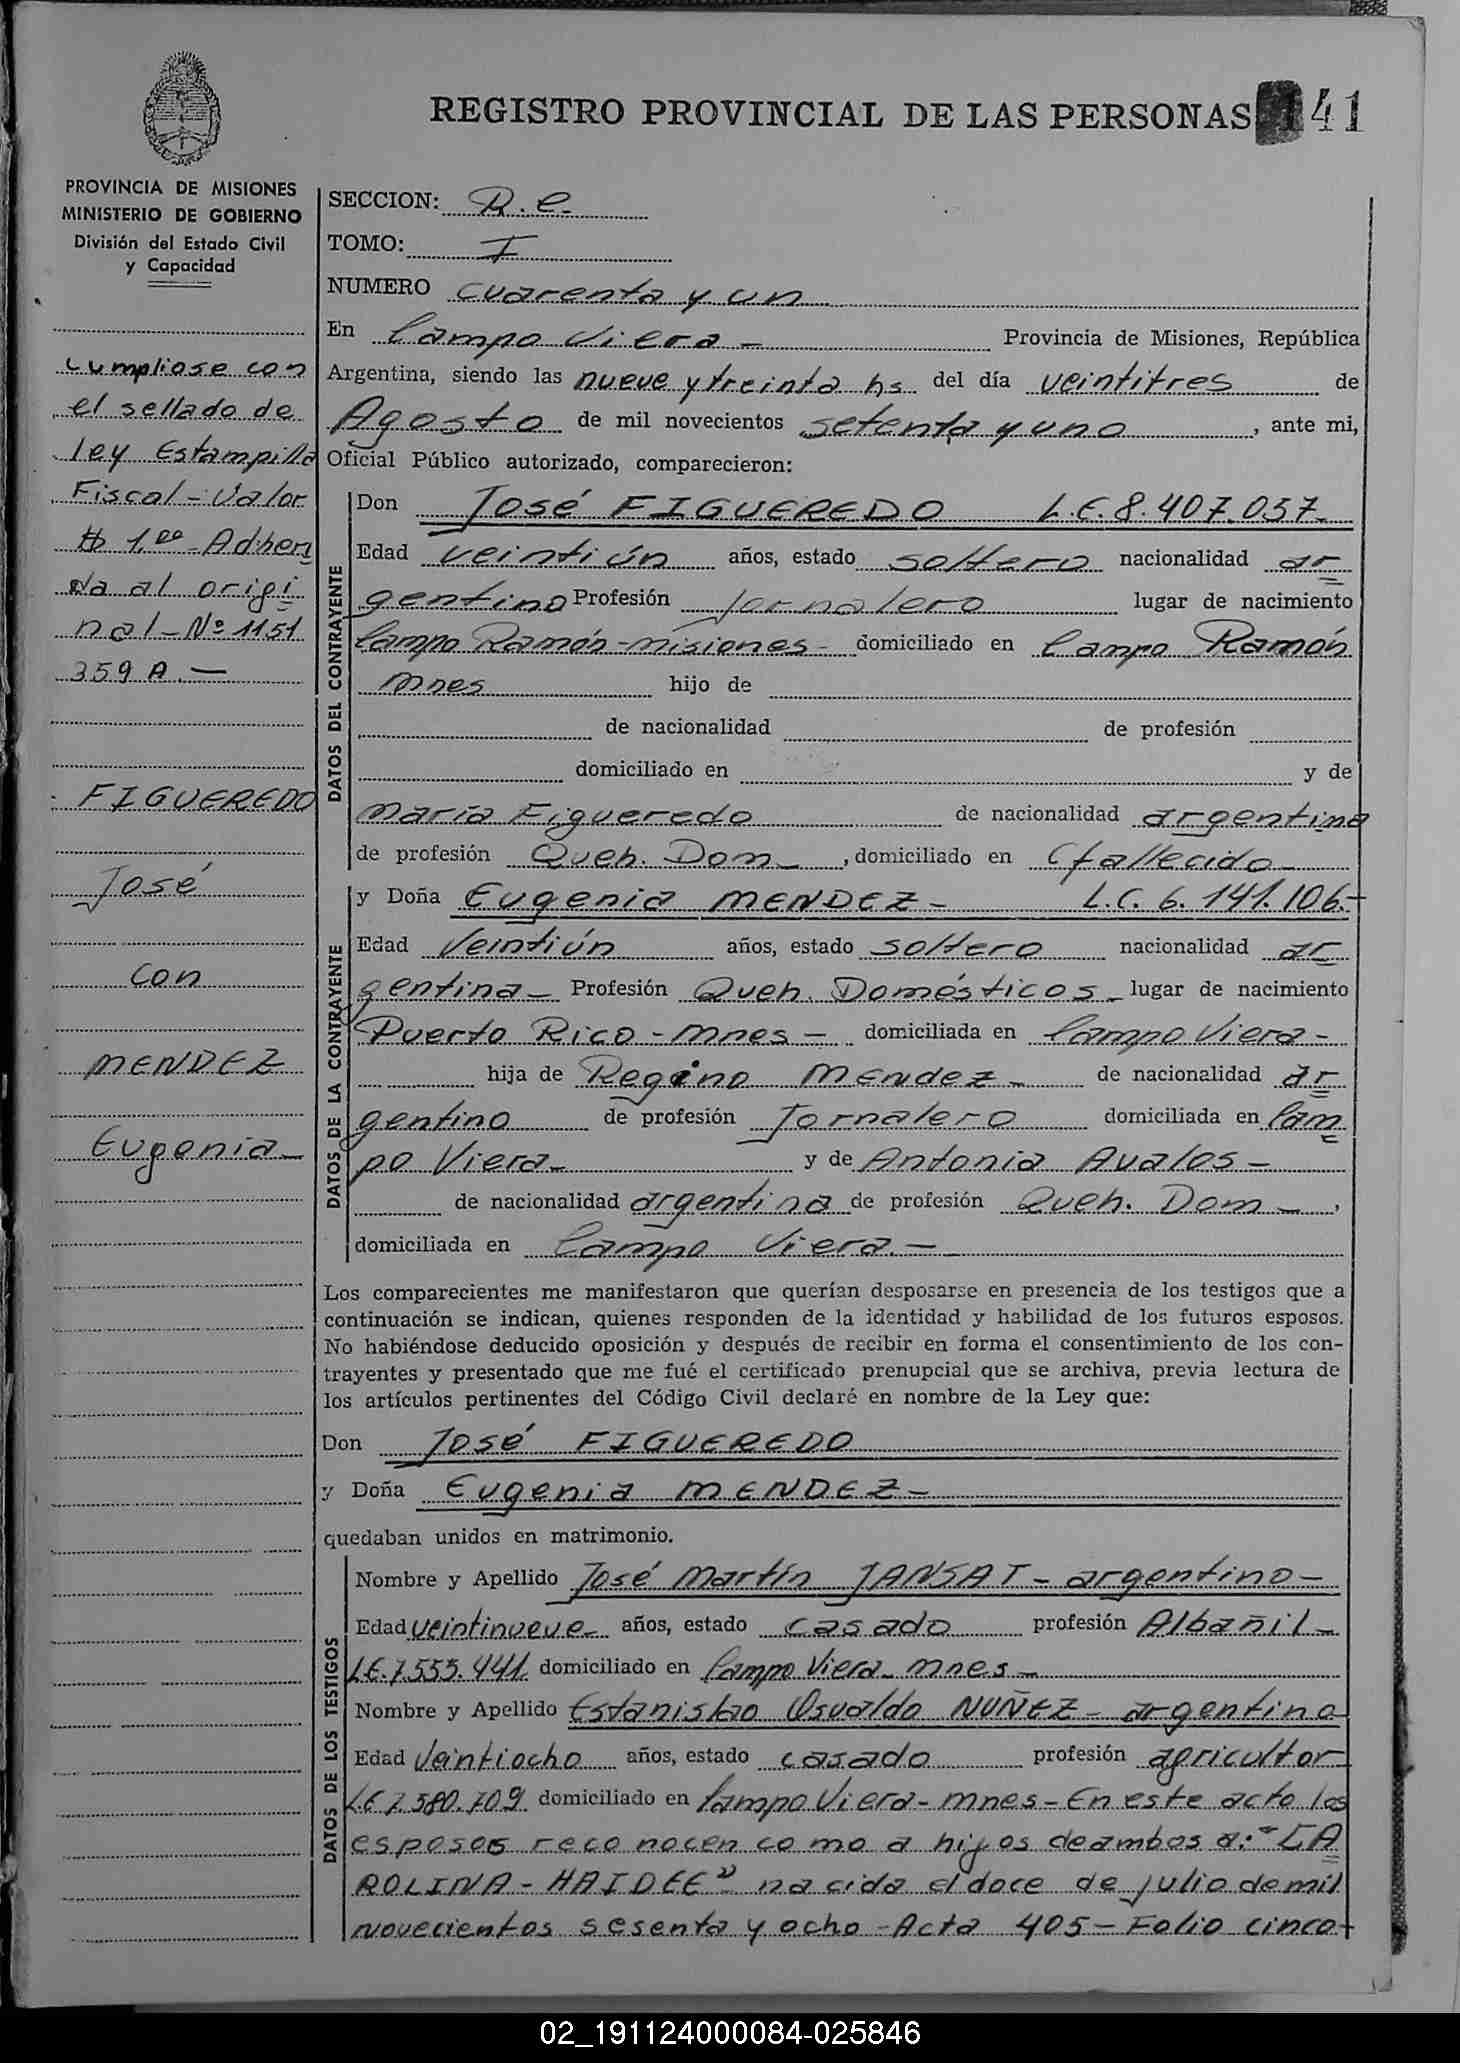 REGISTRO PROVINCIAL DE LAS PERSONAS 141
PROVINCIA DE MISIONES
MINISTERIO DE GOBIERNO
División del Estado Civil
y Capacidad
Cumpliose con
el sellado de
ley Estampilla
Fiscal - Valor
$ 1,00 - Adheri
da al origi
nal - Nº 1151
359 A. —
FIGUEREDO
José
con
MENDEZ
Eugenia -
SECCION: R.C.
TOMO: I
NUMERO Cuarenta y un
En Campo Viera - Provincia de Misiones, República
Argentina, siendo las nueve y treinta hs del día veintitres de
Agosto de mil novecientos setenta y uno, ante mi,
Oficial Público autorizado, comparecieron:
DATOS DEL CONTRAYENTE
Don José FIGUEREDO L.E. 8.407.037-
Edad veintiún años, estado soltero nacionalidad ar
gentino Profesión Jornalero lugar de nacimiento
Campo Ramón - misiones - domiciliado en Campo Ramón
Mnes hijo de
de nacionalidad de profesión
domiciliado en y de
María Figueredo de nacionalidad argentina
de profesión Queh. Dom -, domiciliado en (fallecido -
DATOS DE LA CONTRAYENTE
y Doña Eugenia MENDEZ - L.C. 6.141.106.-
Edad Veintiún años, estado soltero nacionalidad ar
gentina - Profesión Queh. Domésticos - lugar de nacimiento
Puerto Rico - Mnes - domiciliada en Campo Viera -
hija de Regino Mendez - de nacionalidad ar
gentino de profesión Jornalero domiciliada en Cam
po Viera - y de Antonia Avalos -
de nacionalidad argentina de profesión Queh. Dom -,
domiciliada en Campo Viera. -
Los comparecientes me manifestaron que querían desposarse en presencia de los testigos que a
continuación se indican, quienes responden de la identidad y habilidad de los futuros esposos.
No habiéndose deducido oposición y después de recibir en forma el consentimiento de los con-
trayentes y presentado que me fué el certificado prenupcial que se archiva, previa lectura de
los artículos pertinentes del Código Civil declaré en nombre de la Ley que:
Don José FIGUEREDO
y Doña Eugenia MENDEZ -
quedaban unidos en matrimonio.
DATOS DE LOS TESTIGOS
Nombre y Apellido José Martín JANSAT - argentino -
Edad veintinueve - años, estado casado profesión Albañil -
L.E. 7.555.441. domiciliado en Campo Viera - Mnes -
Nombre y Apellido Estanislao Osvaldo NUÑEZ - argentino
Edad Veintiocho años, estado casado profesión agricultor
L.E 7.580.709 domiciliado en Campo Viera - Mnes - En este acto los
esposos reconocen como a hijos de ambos a: "CA
ROLINA - HAIDEE" nacida el doce de julio de mil
novecientos sesenta y ocho - Acta 405 - Folio cinco -
02_191124000084-025846